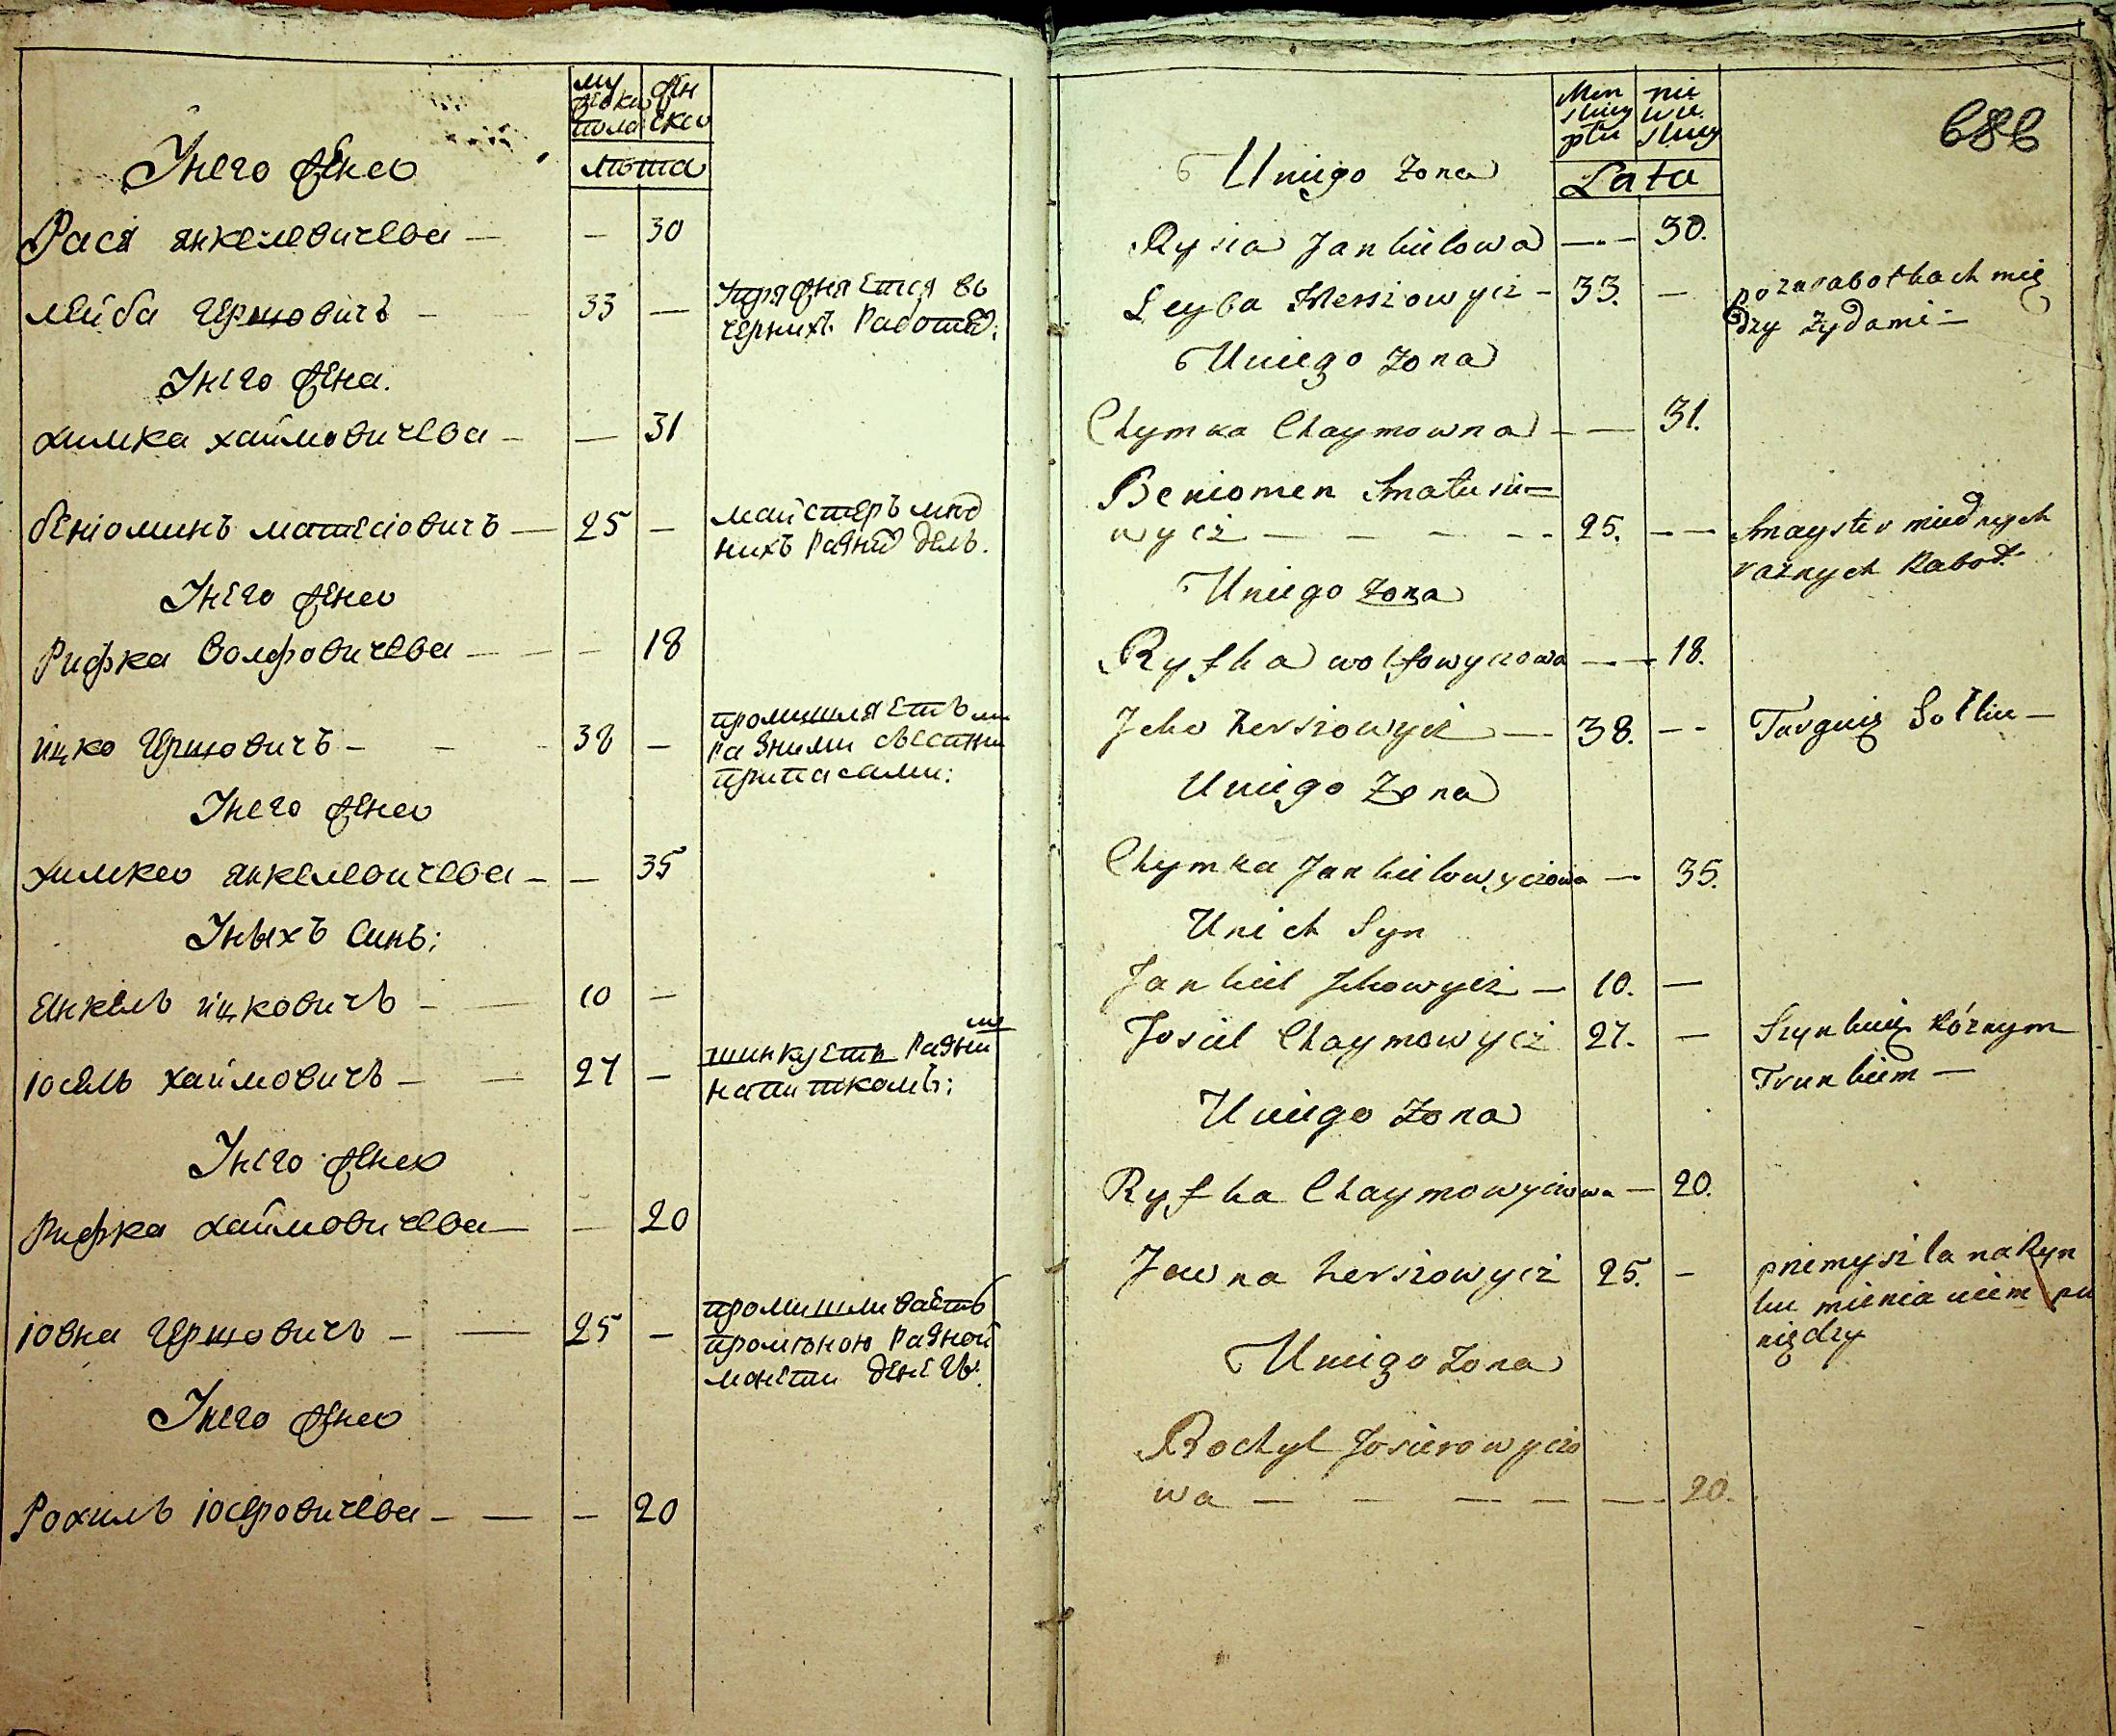 му
жеска
пола
жен
ско
лѣта
У него жена
Рася Янкелевичева — — 30
Лейба Гершовичъ — 33 —
Упражняется въ
черныхъ работ:
У него жена.
Химка Хаймовичева — — 31
Беніоминъ Матесіовичъ — 25 —
майстеръ мѣд
нихъ разни дель.
У него жена
Рифка Волфовичева — — 18
Ицко Гершовичъ — 38 —
промишляетъ
разними съестни
припасами:
У него жена
Химка Янкелевичева — — 35
У ныхъ синъ:
Янкель Ицковичъ — 10 —
Іосель Хаймовичъ — 27 —
ми
шинкуетъ разни
напиткомъ:
У него жена
Рифка Хаймовичева — — 20
Іовна Гершовичъ — 25 —
промишливаетъ
промѣною разной
монети денегъ.
У него жена
Рохиль Іосеровичева — — 20
686
Męn
skiey
płci
nie
wie.
skiey
Lata
U niego Zona
Rysia Jankielowa — — 30.
Leyba Herszowycz — 33. —
po zarabotkach mię
dzy Zydami —
U niego Zona
Chymka Chaymowna — — 31.
Beniomen Matusie=
wycz — — — — 25. — —
Mayster miednych
raznych Rabot.
U niego Zona
Ryfka wolfowyczowa — — 18.
Icko herszowycz — 38. — —
Targuię Solliu —
U niego Zona
Chymka Jankielowyczowa — 35.
U nich Syn
Jankiel Ickowycz — 10. —
Josiel Chaymowycz 27. —
Szynkuię Róznym
Trunkiem —
U niego Zona
Ryfka Chaymowyczowa — 20.
Jowna herszowycz 25. —
przemyszla na Ryn
ku mienianiem pie
niędzy
U niego Zona
Rochyl Josierowyczo
wa — — — — — 20.